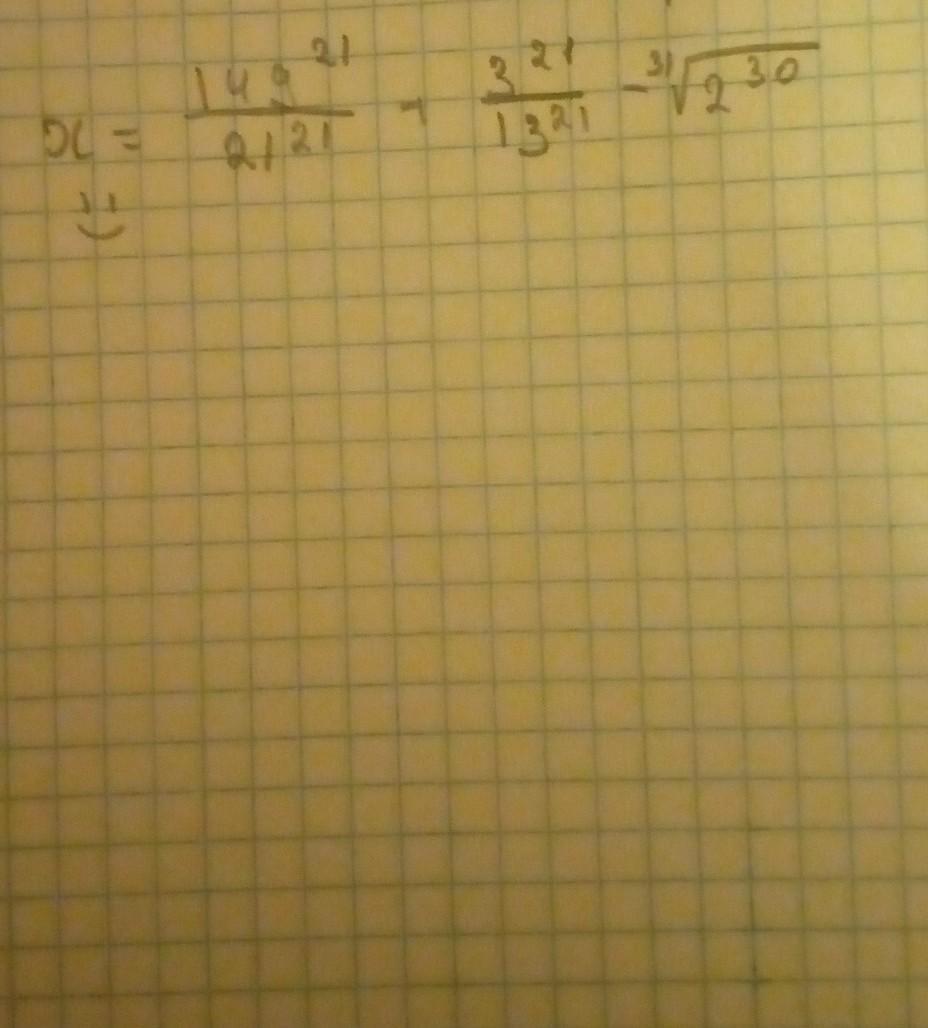 x = \frac{149^{21}}{21^{21}} + \frac{3^{21}}{13^{21}} - \sqrt[31]{2^{30}}